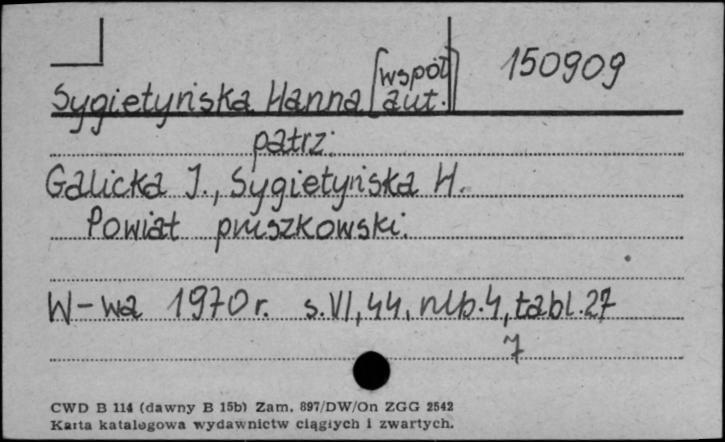 150909
Sygietyńska Hanna [współ
aut.]
patrz:
Galicka J., Sygietyńska H.
Powiat pruszkowski.
W-wa 1970 r. s. VI, 44, nlb. 4, tabl. 27
7
CWD B 114 (dawny B 15b) Zam. 897/DW/On ZGG 2542
Karta katalogowa wydawnictw ciągłych i zwartych.